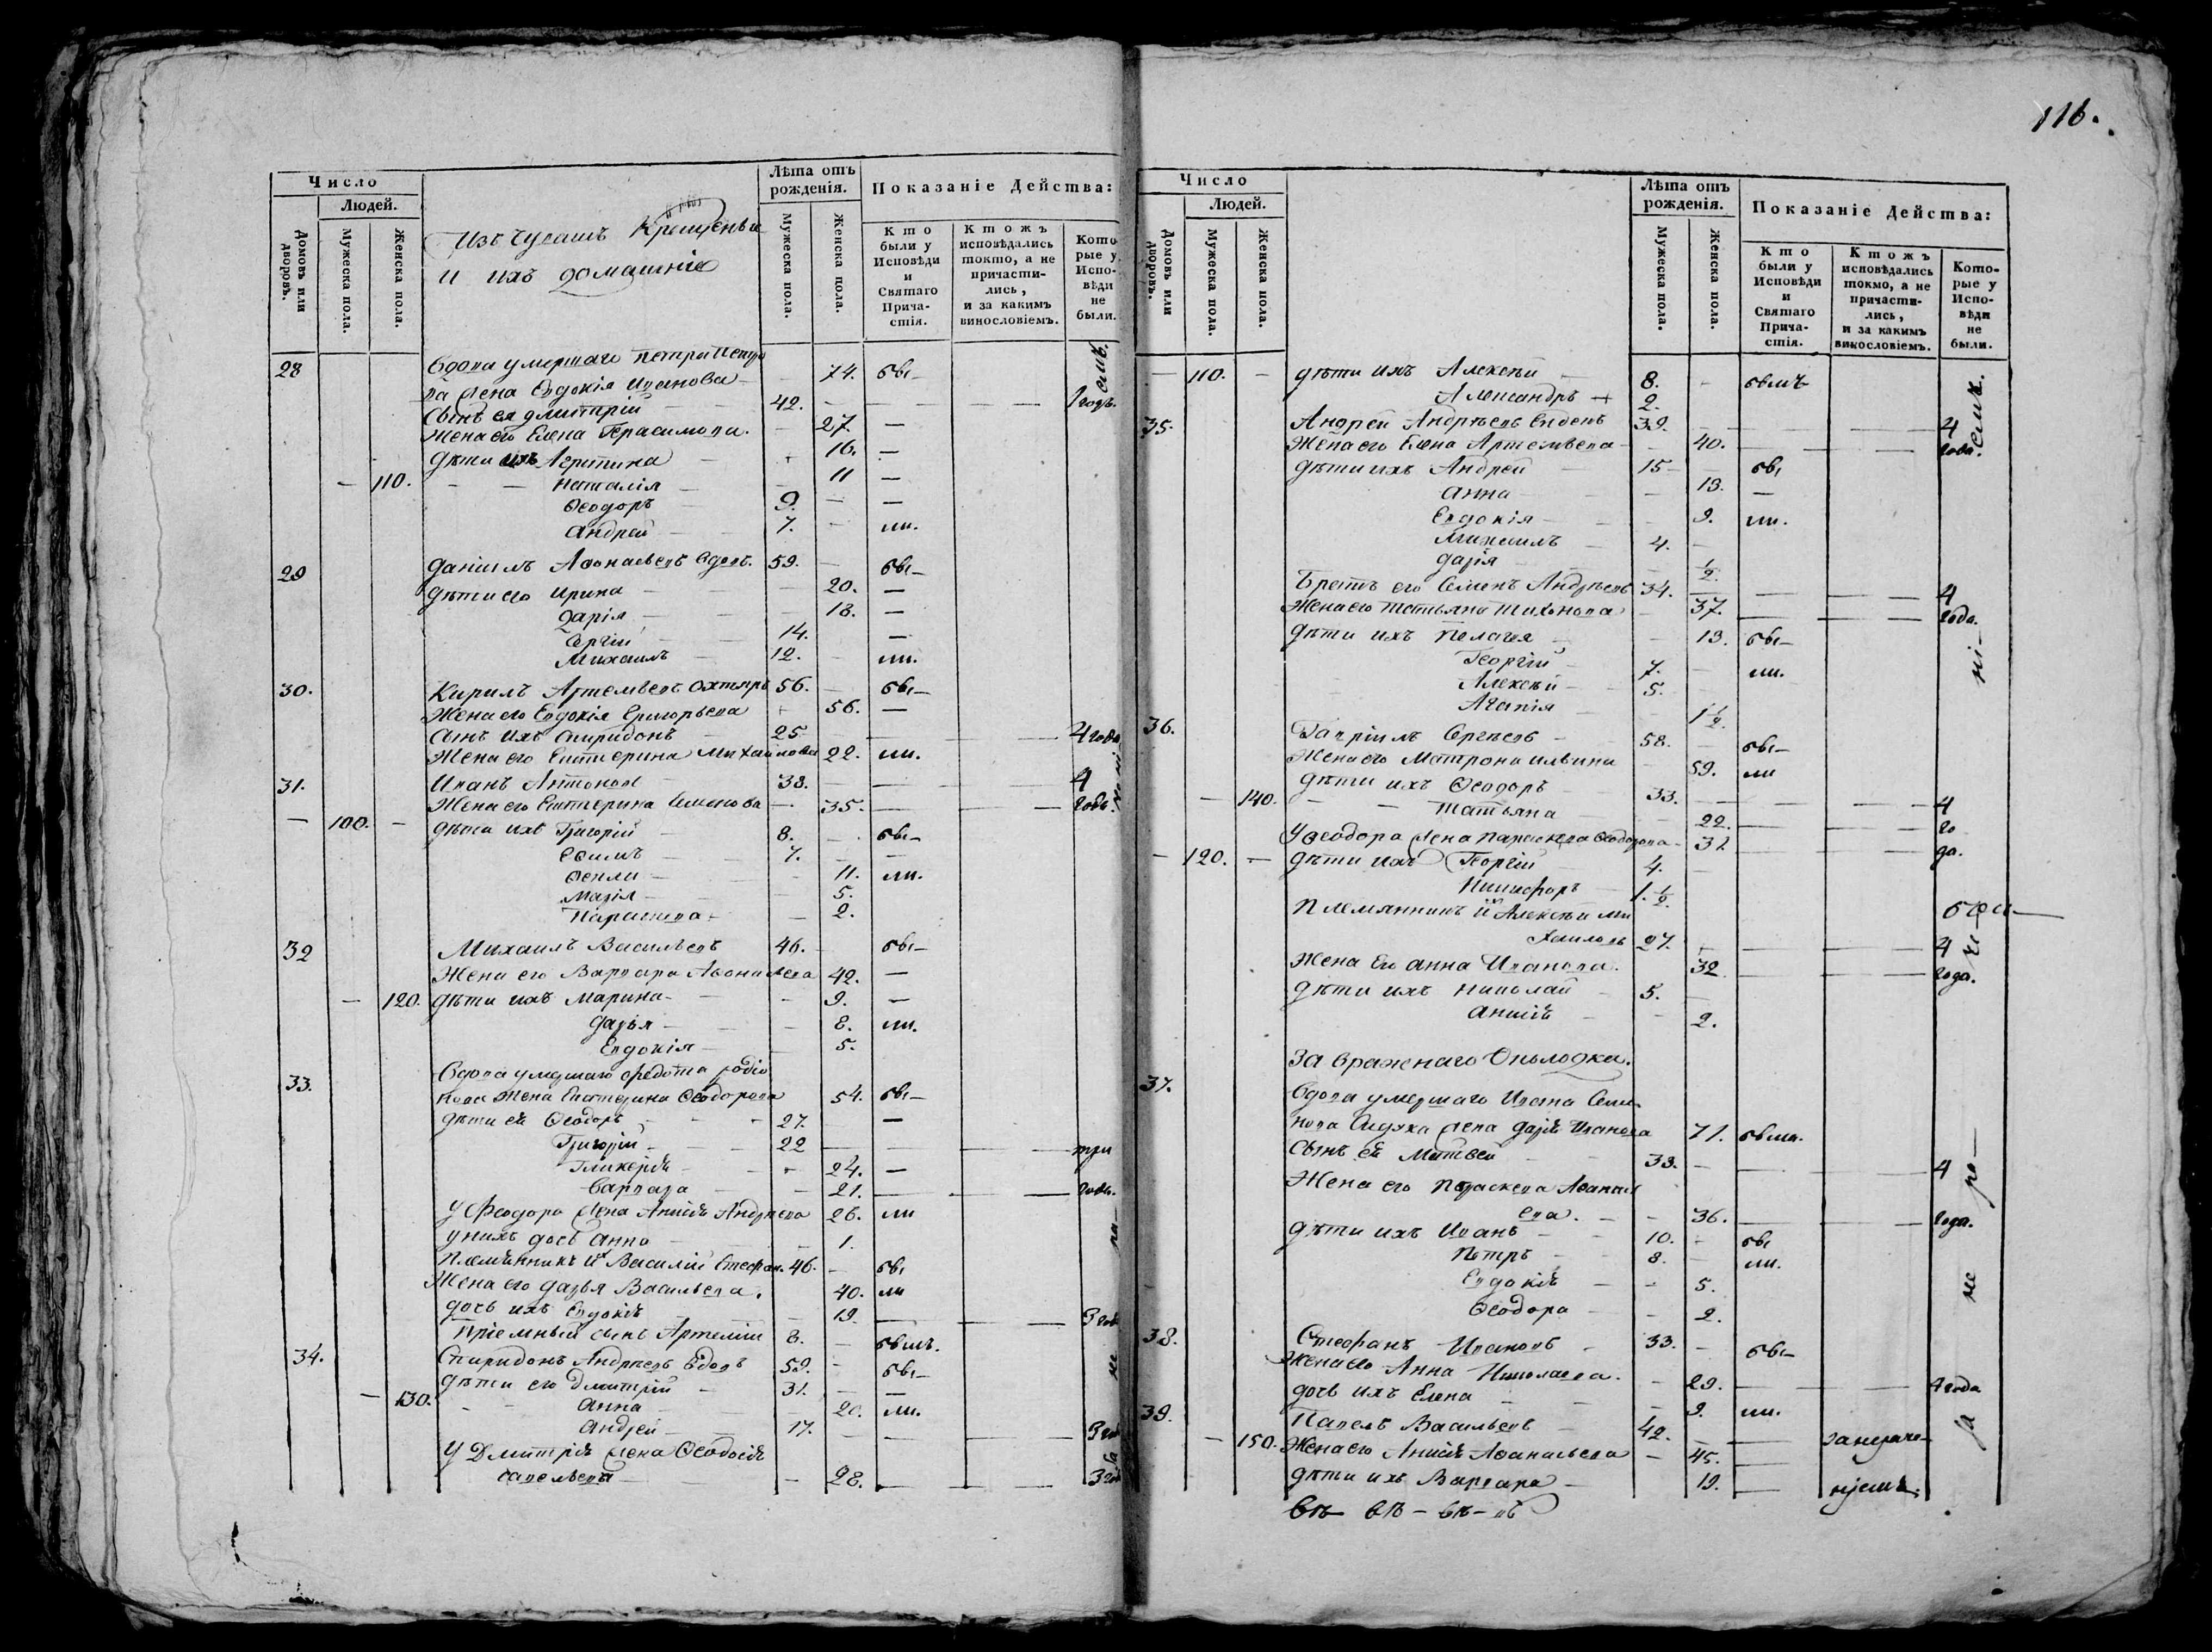 116.
Число
Людей.
Домовъ или дворовъ.
Мужеска пола.
Женска пола.
Изъ Чувашъ Крещеные
и ихъ домашніе
Лѣта отъ рожденія.
Мужеска пола.
Женска пола.
Показаніе Действа:
Кто были у Исповѣди и Святаго Прича-стія.
Ктожъ исповѣдались токмо, а не причасти-лись, и за какимъ винословіемъ.
Кото рые у Испо-вѣди не были.
28 Вдова умершаго Петра
жена Евдокія Иванова 74. бы
Сынъ ея Дмитрій 42. 1 годъ.
Жена его Елена Герасимова. 27 —
дѣти ихъ 16. —
— 110. Наталія 11 —
Ѳеодоръ 9. —
Андрей 7. ли.
29 Даніилъ Аѳонасьевъ вдовъ. 59. бы
дѣти его Ирина 20. —
Дарія 18. —
Сергій 14. —
Михаилъ 12. ли.
30. Кирилъ Артемьевъ 56. бы
Жена его Евдокія Григорьева 56. —
Сынъ ихъ Спиридонъ 25 4 года
Жена его Екатерина Михайлова 22. ли.
31. Иванъ Антоновъ 38. 4
Жена его Екатерина Семенова 35. года.
— 100. — дѣти ихъ Григорій 8. бы
Ефимъ 7. —
11. ли.
Марія 5.
Параскева 2.
32 Михаилъ Васильевъ 46. бы
Жена его Варвара Аѳонасьева 42. —
— 120. дѣти ихъ Марина 9. —
Дарья 8. ли.
Евдокія 5.
33. Вдова умершаго Федота Родіо
нова жена Екатерина Ѳеодорова 54. бы
дѣти ея Ѳеодоръ 27. —
Григорій 22 три
Гликерія 24. —
Варвара 21. года.
У Ѳеодора жена Анисія Андреева 26. ли
у нихъ дочь Анна 1.
Племянникъ ихъ Василій Стефан. 46. бы
Жена его Дарья Васильева. 40. ли
дочь ихъ Евдокія 19. 3 года
Пріемный сынъ Артемій 8. былъ.
34. Спиридонъ Андреевъ вдовъ 59. бы
дѣти его Дмитрій 31. —
— 130. Анна 20. ли.
Андрей 17. 3 года
У Дмитрія жена Ѳеодосія
Савельева 28. 3 года
Число
Людей.
Домовъ или дворовъ.
Мужеска пола.
Женска пола.
Лѣта отъ рожденія.
Мужеска пола.
Женска пола.
Показаніе Действа:
Кто были у Исповѣди и Святаго Прича-стія.
Ктожъ исповѣдались токмо, а не причасти-лись, и за какимъ винословіемъ.
Кото-рые у Испо-вѣди не были.
— 110. — дѣти ихъ Алексѣй 8. былъ
Александръ 2.
35. Андрей Андреевъ 39. 4
Жена его Елена Артемьева 40. года.
дѣти ихъ Андрей 15 бы
Анна 13. —
Евдокія 9. ли.
Михаилъ 4.
Дарія 1/2.
Братъ его Семенъ Андреевъ 34. 4
Жена его Татьяна Тихонова 37. года.
дѣти ихъ Пелагея 13. бы
Георгій 7. ли.
Алексѣй 5.
Агапія 1 1/2.
36. Гавріилъ Сергѣевъ 58. бы
Жена его Матрона Ильина 59. ли
дѣти ихъ Ѳеодоръ 33. 4
— 140. Татьяна 22. го
У Ѳеодора жена Параскева Ѳеодорова 32 да.
— 120. — дѣти ихъ Георгій 4.
Никифоръ 1. 1/2.
Племянникъ ихъ Алексѣй Ми
хаиловъ 27. 4
Жена его Анна Иванова. 32 года.
дѣти ихъ Николай 5.
Анисія 2.
За вражнаго Околодка.
37. Вдова умершаго Ивана Семе
нова жена Дарія Иванова 71. была.
Сынъ ея Матвей 33. 4
Жена его Параскева Аѳанась
ева. 36. года.
дѣти ихъ Иванъ 10. бы
Петръ 8. ли.
Евдокія 5.
Ѳеодора 2.
38. Стефанъ Ивановъ 33. бы
Жена его Анна Николаева. 29. 4 года
дочь ихъ Елена 9. ли.
39. Павелъ Васильевъ 42. за нераче-
— 150. Жена его Анисія Аѳанасьева 45.
дѣти ихъ Варвара 19. ніемъ.